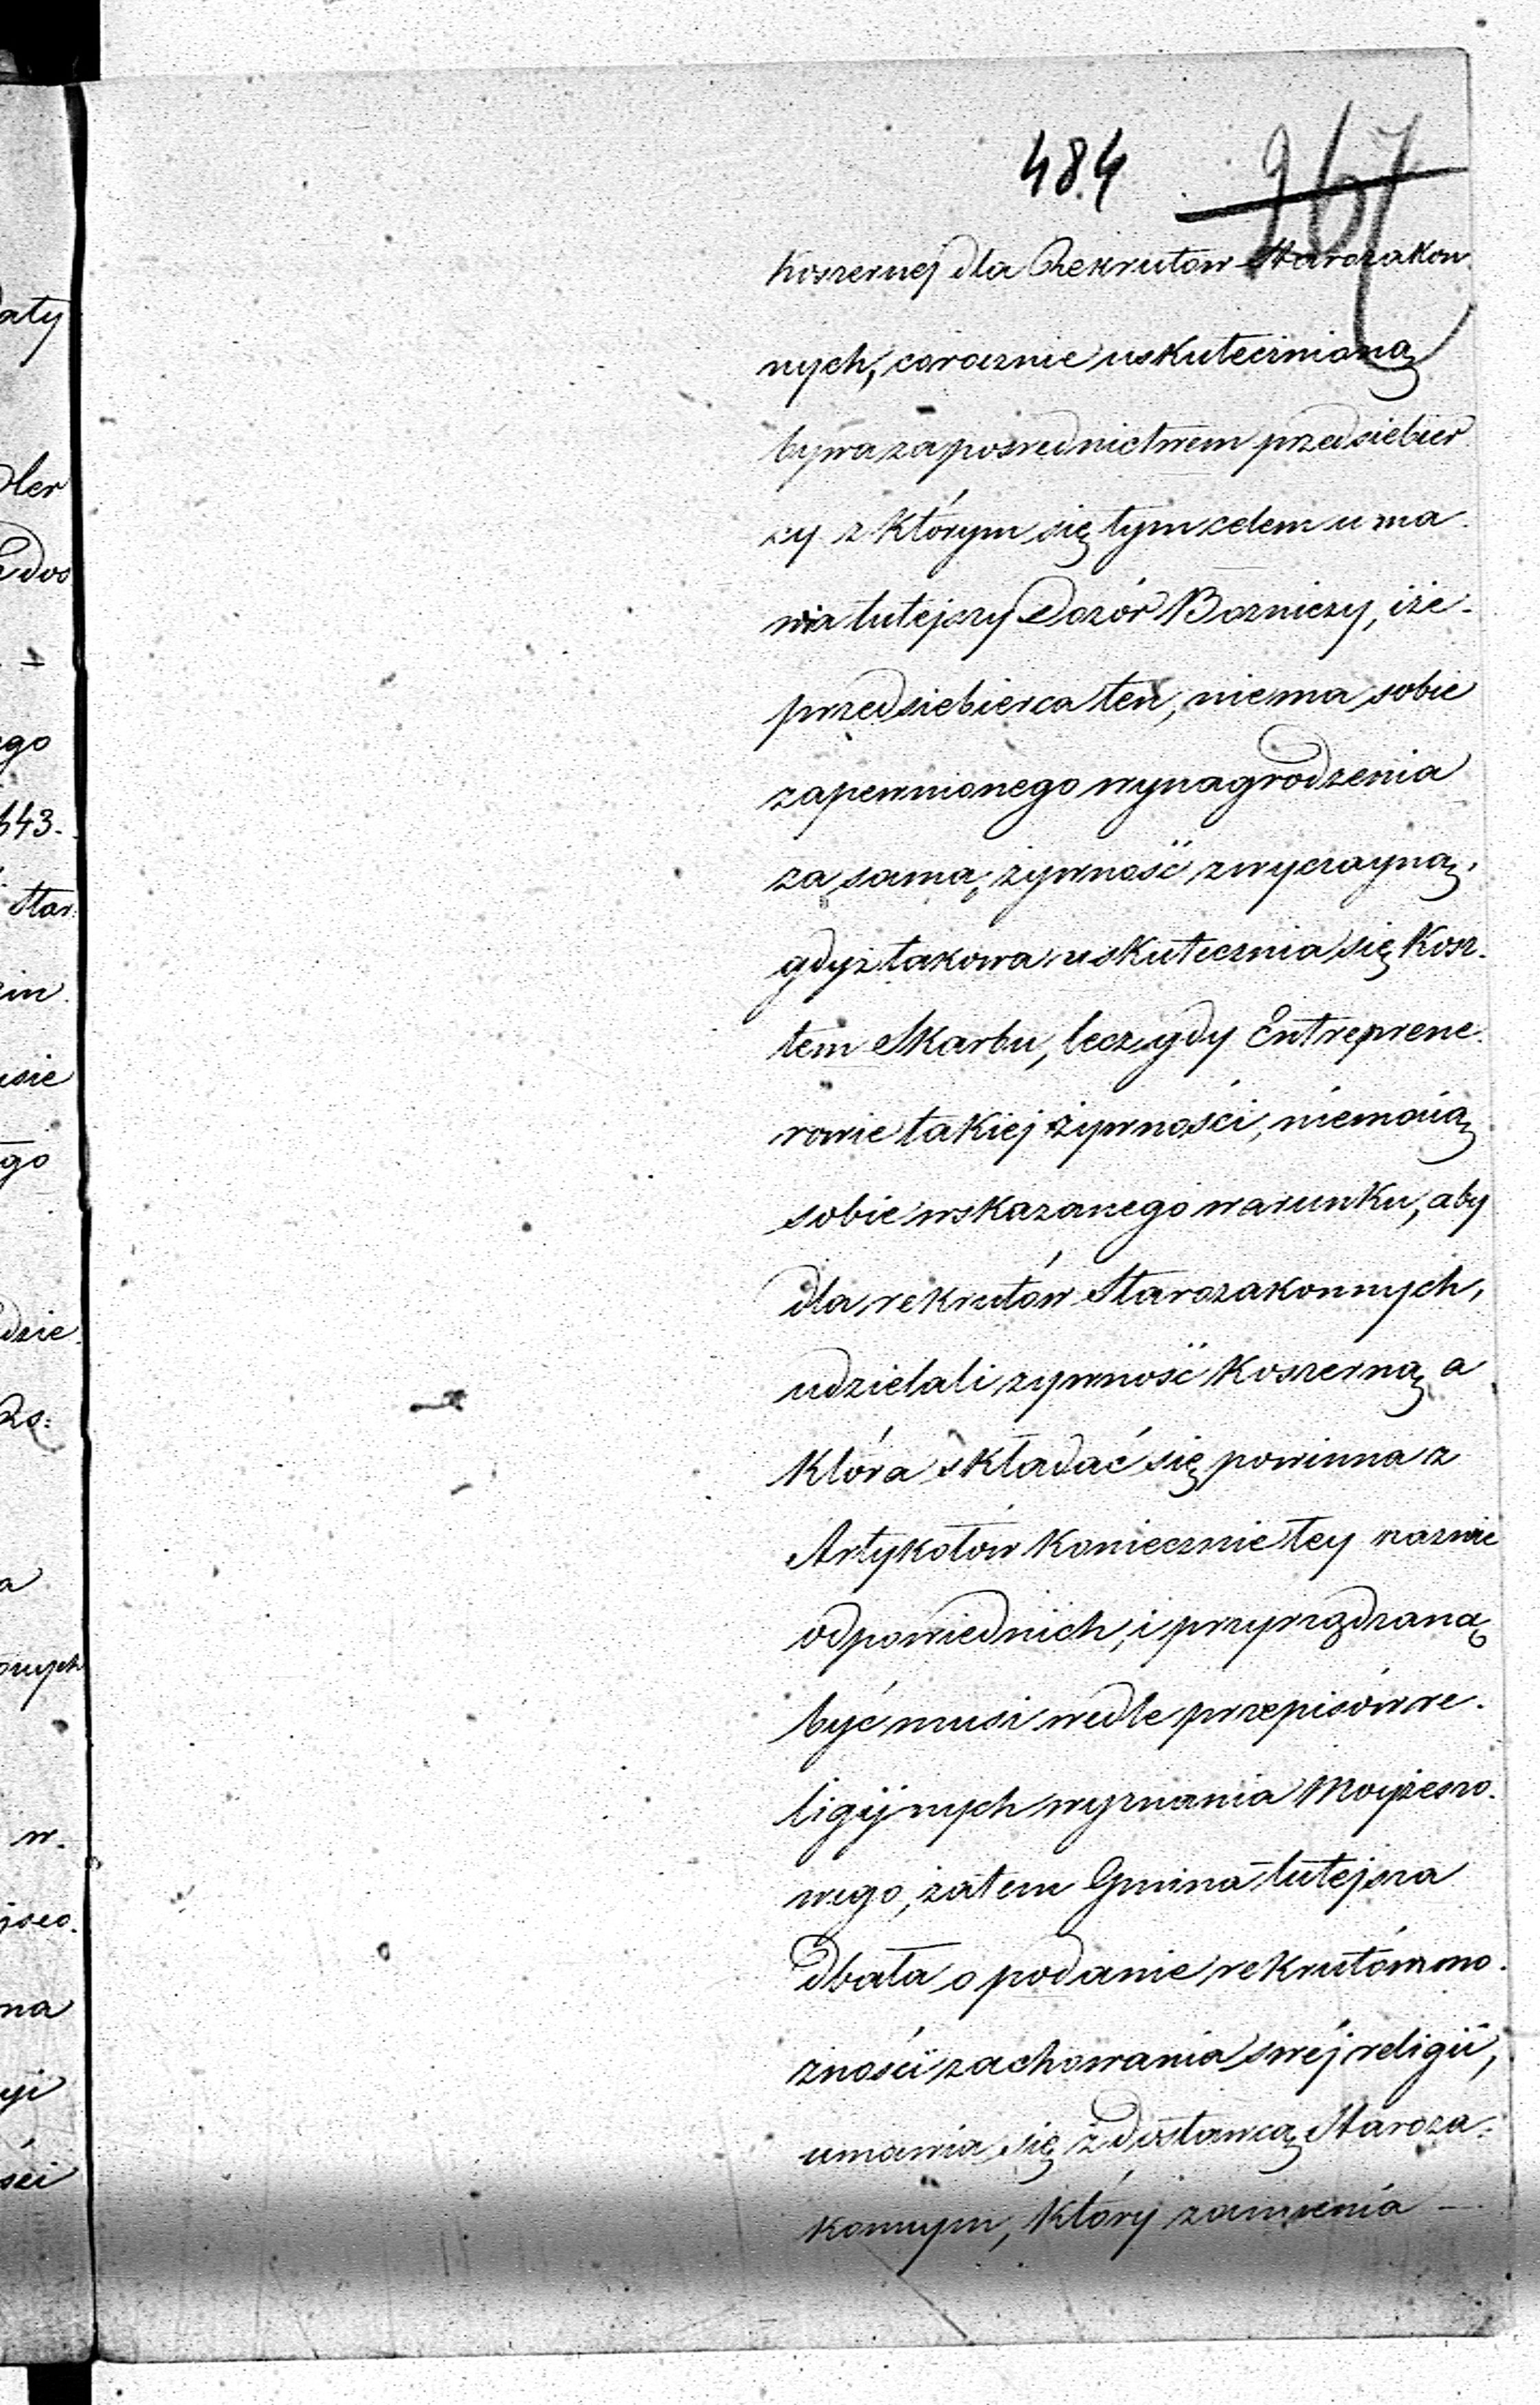 484 967
koszernej dla Rekrutów Starozakon
nych, corocznie uskutecznianą
bywa za posrednictwem przedsiebier
cy z którym się tym celem uma
wia tutejszy Dozór Bozniczy, iże
przedsiebierca ten, nie ma sobie
zapewnionego wynagrodzenia
za samą żywność zwyczayną,
gdyż takowa uskutecznia się kosz-
tem Skarbu, lecz gdy Entreprene-
rowie takiej żywności, niemaią
sobie wskazanego warunku, aby
dla rekrutów Starozakonnych,
udzielali żywność koszerną a
która składać się powinna z
Artykołów koniecznie tey nazwie
odpowiednich, i przyrządzaną
być musi wedle przepisów re-
ligijnych wyznania Mojżeszo-
wego, zatem Gmina tutejsza
dbała o podanie rekrutom mo-
żności zachowania swéj religii,
umawia się z dostawcą Staroza-
konnym, który zamienia —
aty
dler
ego
643.
Star
cin
usie
ego
dzie
Rs:
a
onych
w.
jsco.
na
yi
ści